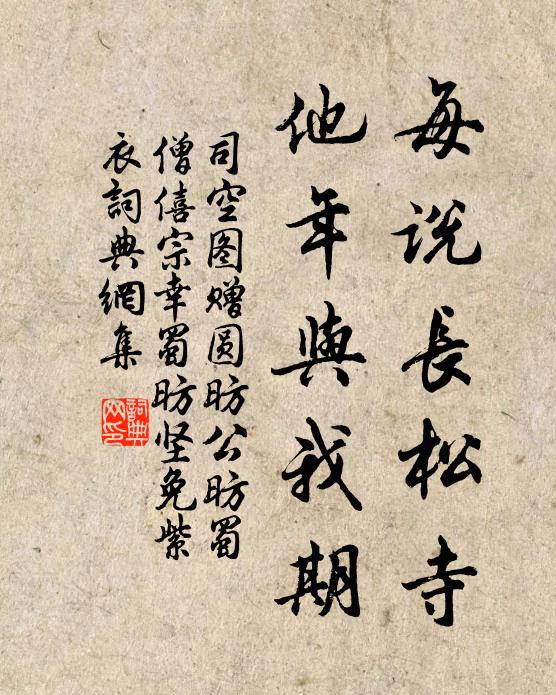 每说長松寺
他年與我期
司空图赠圆昉公昉蜀
僧僖宗幸蜀昉坚免紫
衣詞典網集
詞典网印